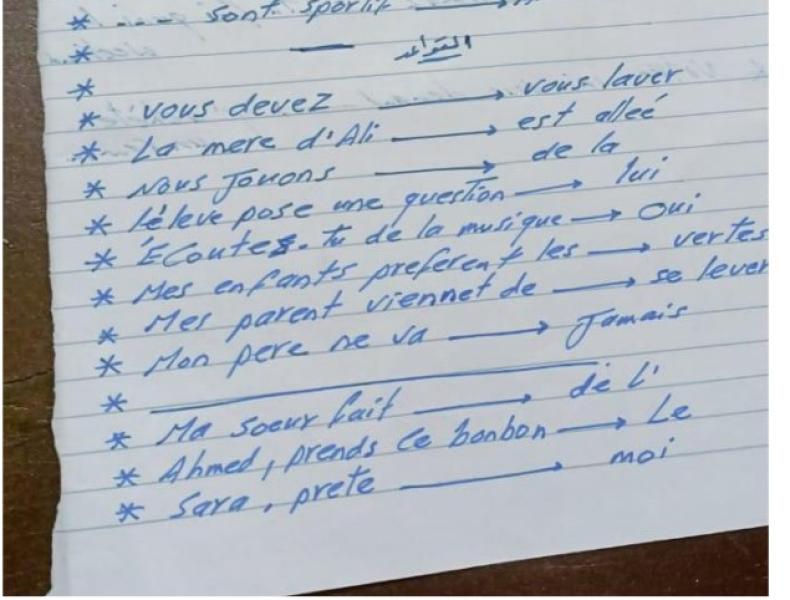 * --- sont sportif ⟶
* — القواعد
*
* vous devez ⟶ vous laver
* La mere d'Ali ⟶ est alleé
* Nous Jouons ⟶ de la
* l'éleve pose une question ⟶ lui
* Écoutes-tu de la musique ⟶ Oui
* Mes enfants preferent les ⟶ vertes
* Mes parent viennet de ⟶ se lever
* Mon pere ne va ⟶ Jamais
*
* Ma soeur fait ⟶ de l'
* Ahmed, prends ce bonbon ⟶ Le
* Sara, prete ⟶ moi